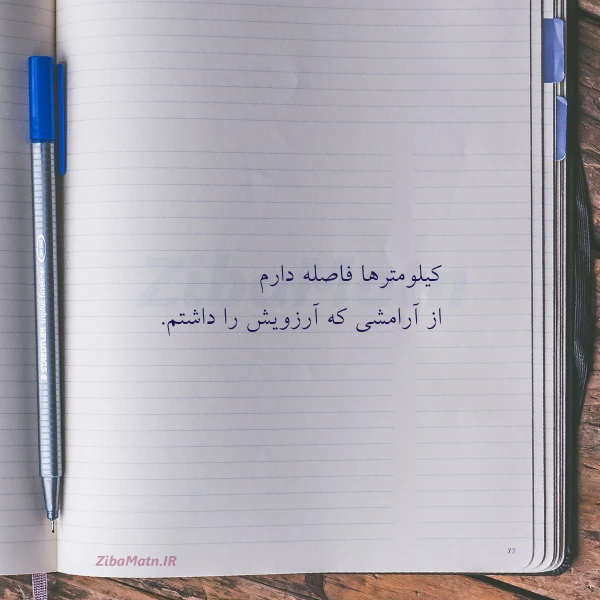 کیلومترها فاصله دارم
از آرامشی که آرزویش را داشتم.
ZibaMatn.IR
77